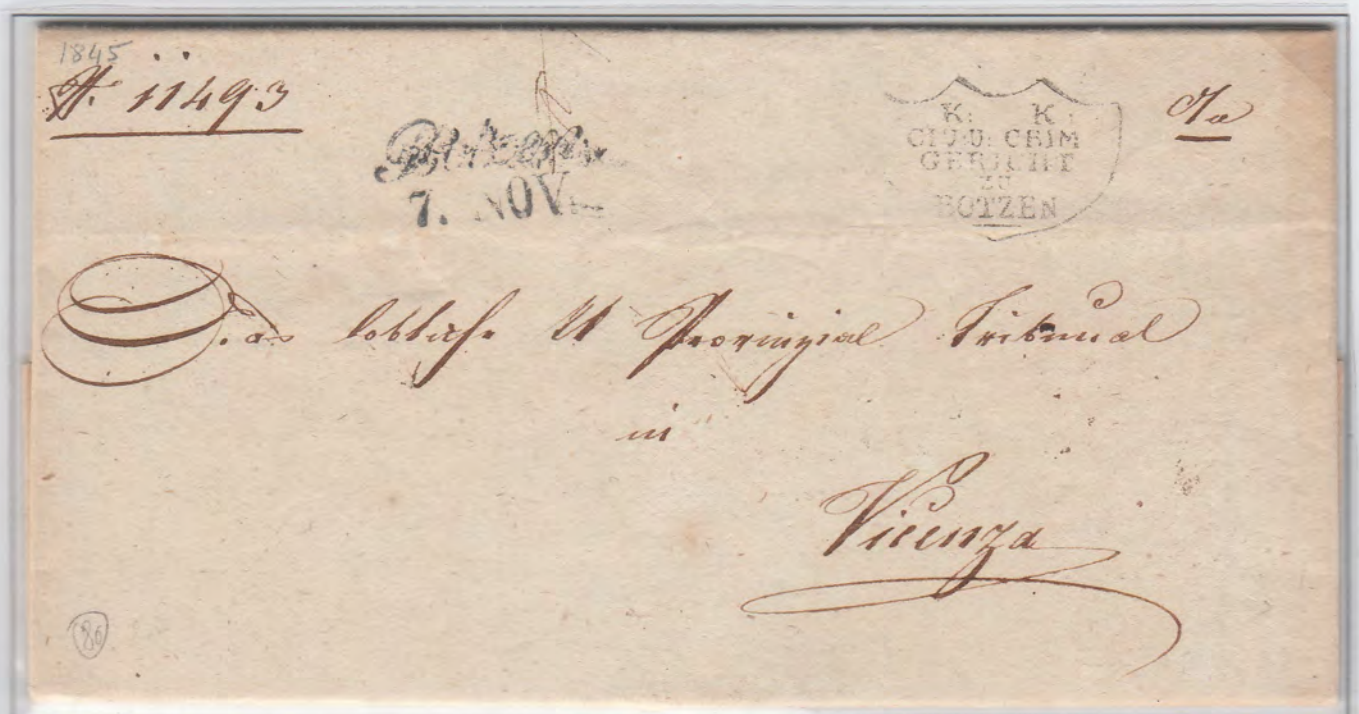 1845
N. 11493
Botzen
7. NOV.
K: K:
CIV: U: CRIM
GERICHT
ZU
BOTZEN
Das löbliche kk Provinzial Tribunal
in
Vicenza
86